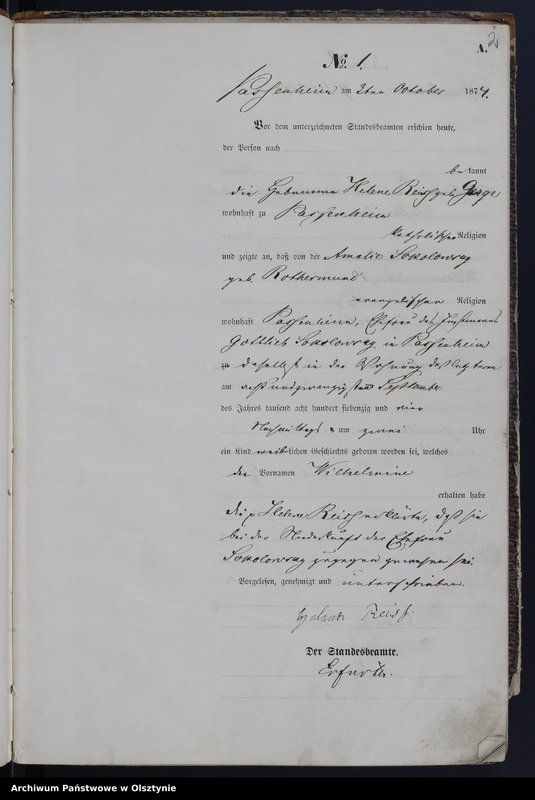 A. 2
No. 1.
Passenheim am 2ten October 1874.
Vor dem unterzeichneten Standesbeamten erschien heute,
der Person nach
bekannt
die Hebamme Helene Reiß geb.
wohnhaft zu Passenheim
katholischer Religion
und zeigte an, daß von der Amalie Sokolowsky
geb. Rothermund
evangelischer Religion
wohnhaft Passenheim, Ehefrau des Instmanns
Gottlieb Sokolowsky in Passenheim
zu daselbst in der Wohnung des letzteren
am acht und zwanzigsten September
des Jahres tausend acht hundert siebenzig und vier
Nachmittags um zwei Uhr
ein Kind weiblichen Geschlechts geboren worden sei, welches
den Vornamen Wilhelmine
erhalten habe
die p Helene Reiß erklärte, daß sie
bei der Niederkunft der Ehefrau
Sokolowsky zugegen gewesen sei.
Vorgelesen, genehmigt und unterschrieben.
Reiß.
Der Standesbeamte.
Erfurth.
Archiwum Państwowe w Olsztynie